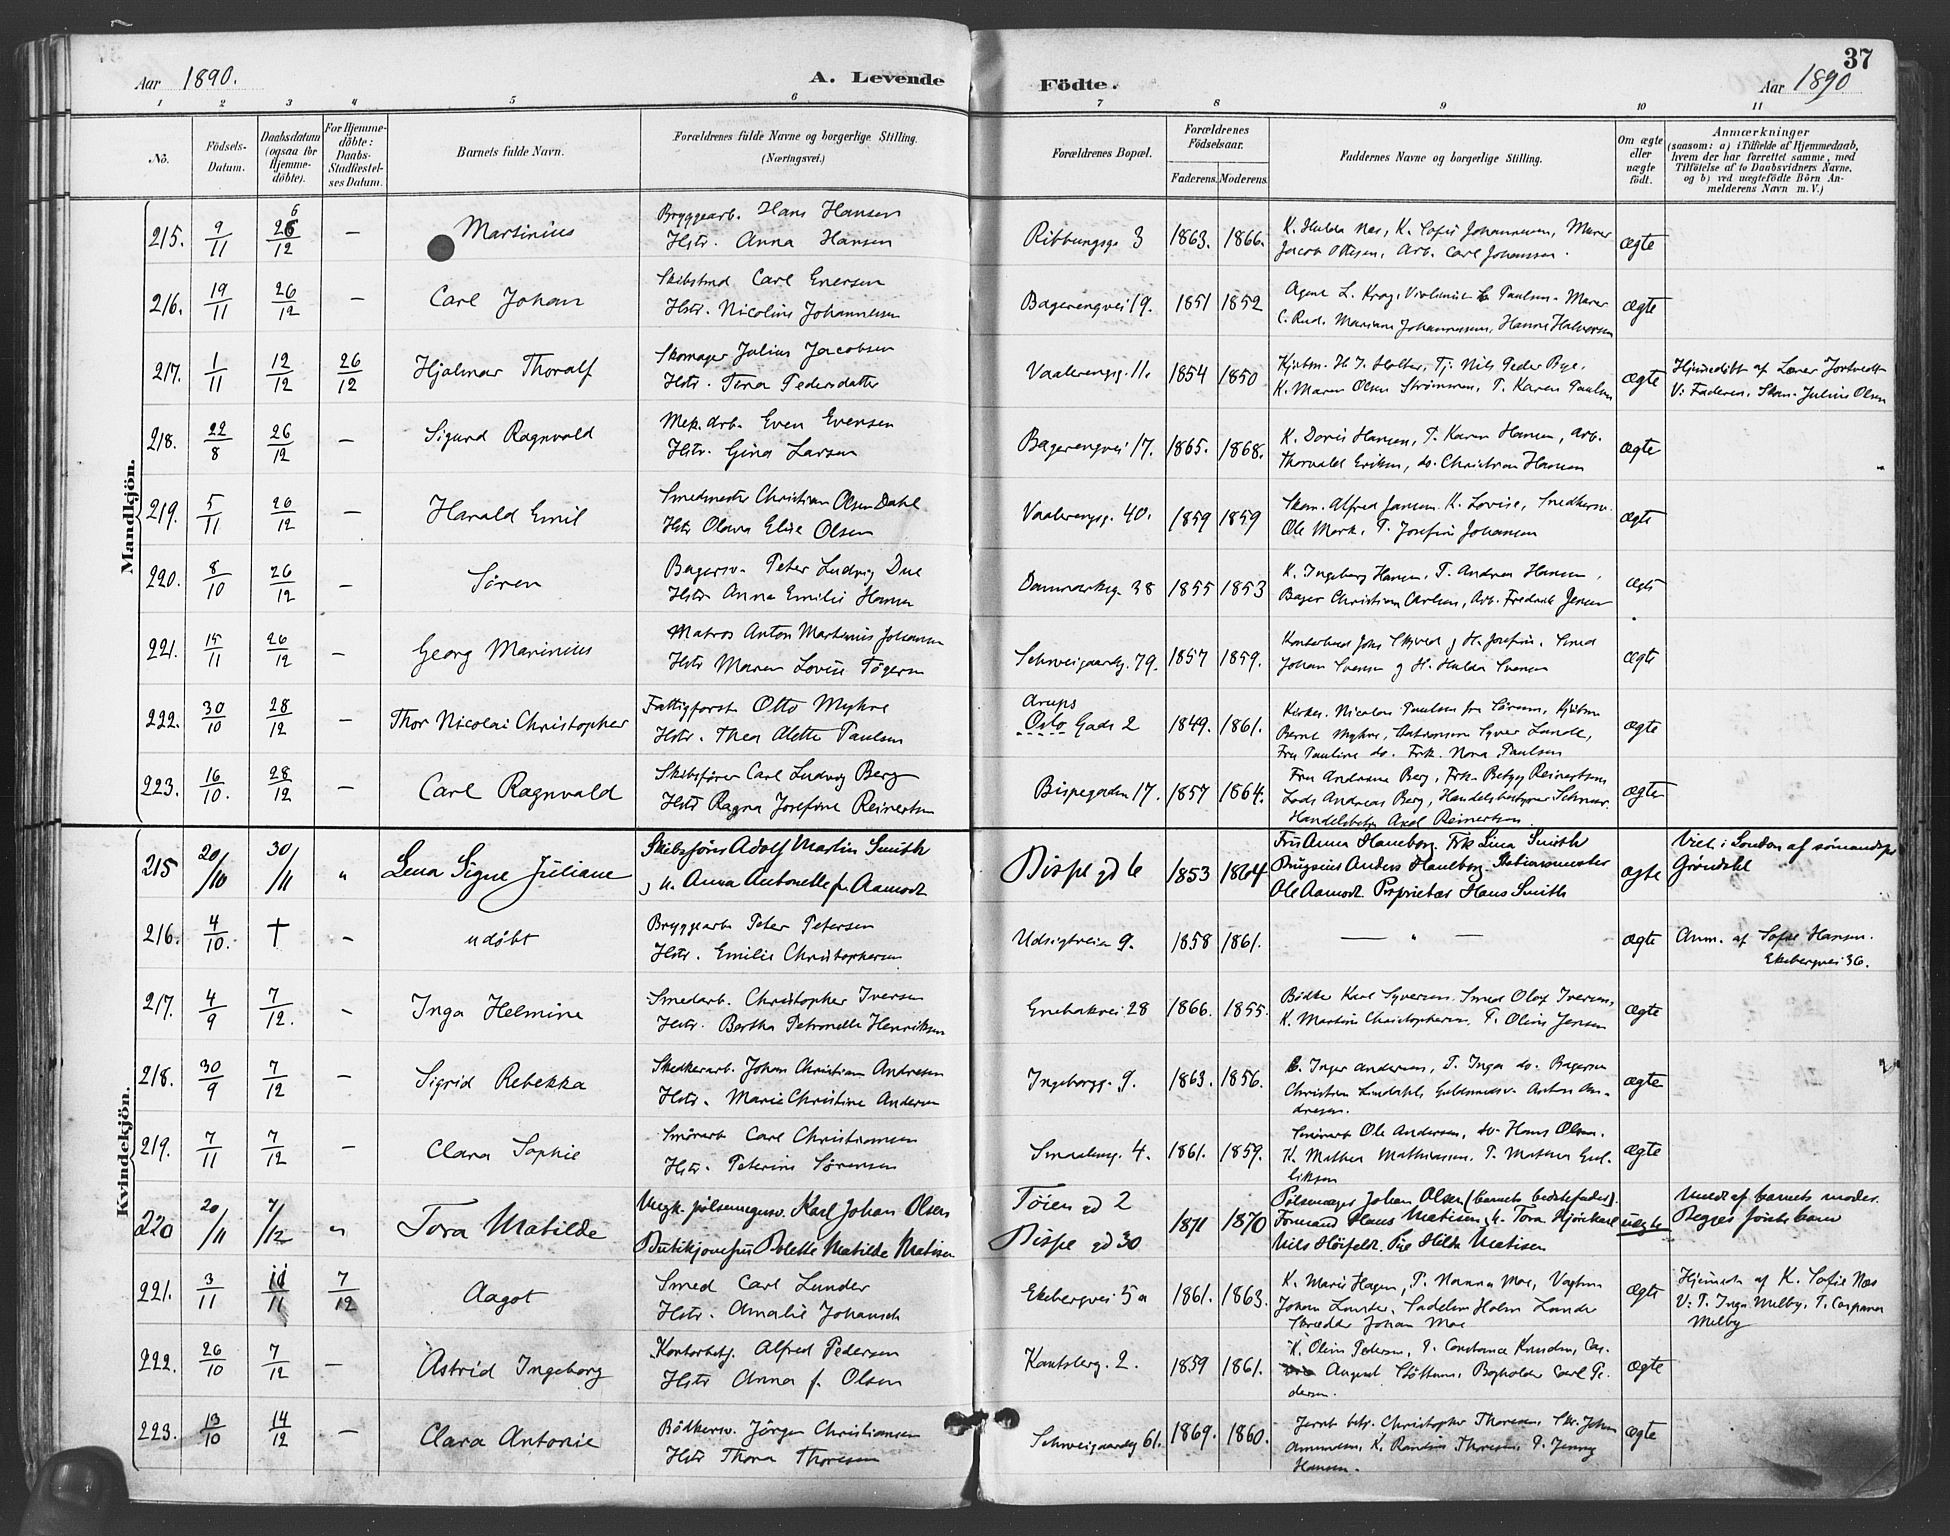 37
Aar 1890. A. Levende Födte. Aar 1890
1 2 3 4 5 6 7 8 9 10 11
No. Födsels-Datum. Daabsdatum (ogsaa for Hjemme-döbte). For Hjemme-döbte: Daabs-Stadfæstel-ses Datum. Barnets fulde Navn. Forældrenes fulde Navne og borgerlige Stilling. (Næringsvei.) Forældrenes Bopæl. Forældrenes Födselsaar. Faderens. Moderens. Faddernes Navne og borgerlige Stilling. Om ægte eller uægte födt. Anmærkninger (saasom: a) i Tilfælde af Hjemmedaab, hvem der har forrettet samme, med Tilföielse af to Daabsvidners Navne, og b) ved uægtefödte Börn An-melderens Navn m. V.)
Mandkjön.
215. 9/11 26/12 – Martinius Bryggearb. Hans Hansen Ribbungsg. 3 1863. 1866. K. Hulda Næs, K. Sofie Johannesen, Murer ægte
Hstr. Anna Hansen Jacob Ottesen, Arb. Carl Johansen.
216. 19/11 26/12 – Carl Johan Skibstmd Carl Enersen Bagerengvei 19. 1851 1852 Agent L. Krag, Paulsen. Murer ægte
Hstr. Nicoline Johannesen C. Rud. Mariane Johannesen, Hanne Halvorsen
217. 1/11 12/12 26/12 Hjalmar Thoralf Skomager Julius Jacobsen Vaalerengg. 11. 1854 1850 Kjøbm. H. J. Holter, Tj. Nils Peder Bye. ægte Hjemmedöbt af Lærer
Hstr. Tina Pedersdatter K. Maren Olsen Strømmen, P. Karen Paulsen V: Faderen, Skom. Julius Olsen
218. 22/8 26/12 – Sigurd Ragnvald Mek. arb. Even Evensen Bagerengvei 17. 1865. 1868. K. Doris Hansen, P. Karen Hansen, Arb. ægte
Hstr. Gina Larsen Thorvald Eriksen, do. Christian Hansen
219. 5/11 26/12 – Harald Emil Smedmester Christian Olsen Dahl Vaalerengg. 40. 1859 1859 Skom. Alfred Jansen. K. Lovise, Snedkersv. ægte
Hstr Olava Elise Olsen Ole Mork, P. Josefine Johansen
220. 8/10 26/12 – Sören Bagersv. Peter Ludvig Due Danmarksg. 38 1855 1853 K. Ingeborg Hansen, P. Andrea Hansen, ægte
Hstr. Anna Emilie Hansen Bager Christian Carlsen, Arb. Fredrik Jensen
221. 15/11 26/12 – Georg Marinius Matros Anton Martinius Johansen Schweigaardsg. 79. 1857 1859. Kontorbud Johs Skjved og H. Josefine, Smed ægte
Hstr Maren Lovise Johan Svensen og H. Hulda Svensen
222. 30/10 28/12 – Thor Nicolai Christopher Fattigforst. Otto Myhre Arups Oslo Gade 2 1849. 1861. Kirkes. Nicolai Paulsen fra Sörum, Kjöbm ægte
Hstr. Thea Alette Paulsen Bernt Myhre, Syver Lande,
Fru Pauline do. Frk. Nora Paulsen
223. 16/10. 28/12 – Carl Ragnvald Skibsförer Carl Ludvig Berg Bispegaden 17. 1857 1864. Fru Andrine Berg, Frk. Betzy Reinertsen ægte
Hstr Ragna Josefine Reinertsen Lods Andreas Berg, Handelsbestyrer
Handelsbetj. Axel Reinertsen.
Kvindekjön.
215 20/10 30/11 " Lena Signe Juliane Skibsförer Adolf Martin Smith Bispe gd 6 1853 1864 Fru Anna Haneborg. Frk Lina Smith ægte Viet i London af sømandspr
og H. Anna Antonette f. Aamodt Brugseier Anders Haneborg. Stationsmester Gröndahl
Ole Aamodt. Proprietær Hans Smith
216. 4/10. † – udøbt Bryggearb Peter Petersen Udsigtveien 9. 1858 1861. — " — ægte Anm. af Sofie Hansen.
Hstr. Emilie Christophersen Ekebergvei 36.
217. 4/9 7/12. – Inga Helmine Smedarb. Christopher Iversen Enebakvei 28 1866. 1855. Bödker Karl Syversen. Smed Olaf Iversen, ægte
Hstr. Bertha Petronelle Henriksen K. Martine Christophersen, P. Oline Jensen
218. 30/9 7/12 – Sigrid Rebekka Snedkerarb. Johan Christian Andresen Ingeborgg. 9. 1863. 1856. E. Inger Andersen, P. Inga do. Bagersv ægte
Hstr. Marie Christine Andersen Christian Lindahl, Guldsmedsv. Anton An-
dresen.
219. 7/11 7/12 – Clara Sophie Smörarb Carl Christiansen Smaalensg. 4. 1861. 1859. Smörarb Ole Andersen, do Hans Olsen. ægte
Hstr. Peterine Sörensen K. Mathea Mathiassen, P. Mathea Gul-
liksen
220 20/11 7/12 " Tora Matilde Ungk. pølsemagersv. Karl Johan Olsen Töien gd 2 1871 1870 Pølsemager Johan Olsen (barnets bedstefader). uægte Meldt af barnets moder.
Butikjomfru Bolette Matilde Matisen Bispe gd 30 Formand Hans Matisen, h. Tora Begges første barn
Nils Höifeldt. Pige Hilda Matisen
221. 3/11 11/11 7/12 Aagot Smed Carl Lunder Ekebergvei 5a 1861. 1863. K. Marie Hagen, P. Nanna Moe, Vognm ægte Hjemmed. af K. Sofie Næs
Hstr. Amalie Johansen Johan Lunder, Sadelm Holm Lunde V: P. Inga Melby, P. Caspara
Skrædder Johan Moe Melby
222. 26/10 7/12 – Astrid Ingeborg Kontorbetj. Alfred Pedersen Kantsberg. 2. 1859 1861. K. Oline Pedersen, P. Constance Knudsen, ægte
Hstr Anna f. Olsen August Bogholder Carl Pe-
dersen.
223. 13/10 14/12 – Clara Antonie Bödkersv. Jörgen Christiansen Schweigaardsg 61. 1869. 1860. Jernb. betj. Christopher Thoresen, Skr. Johan ægte
Hstr Thora Thoresen Amundsen, K. Randine Thoresen, P. Jenny
Hansen.